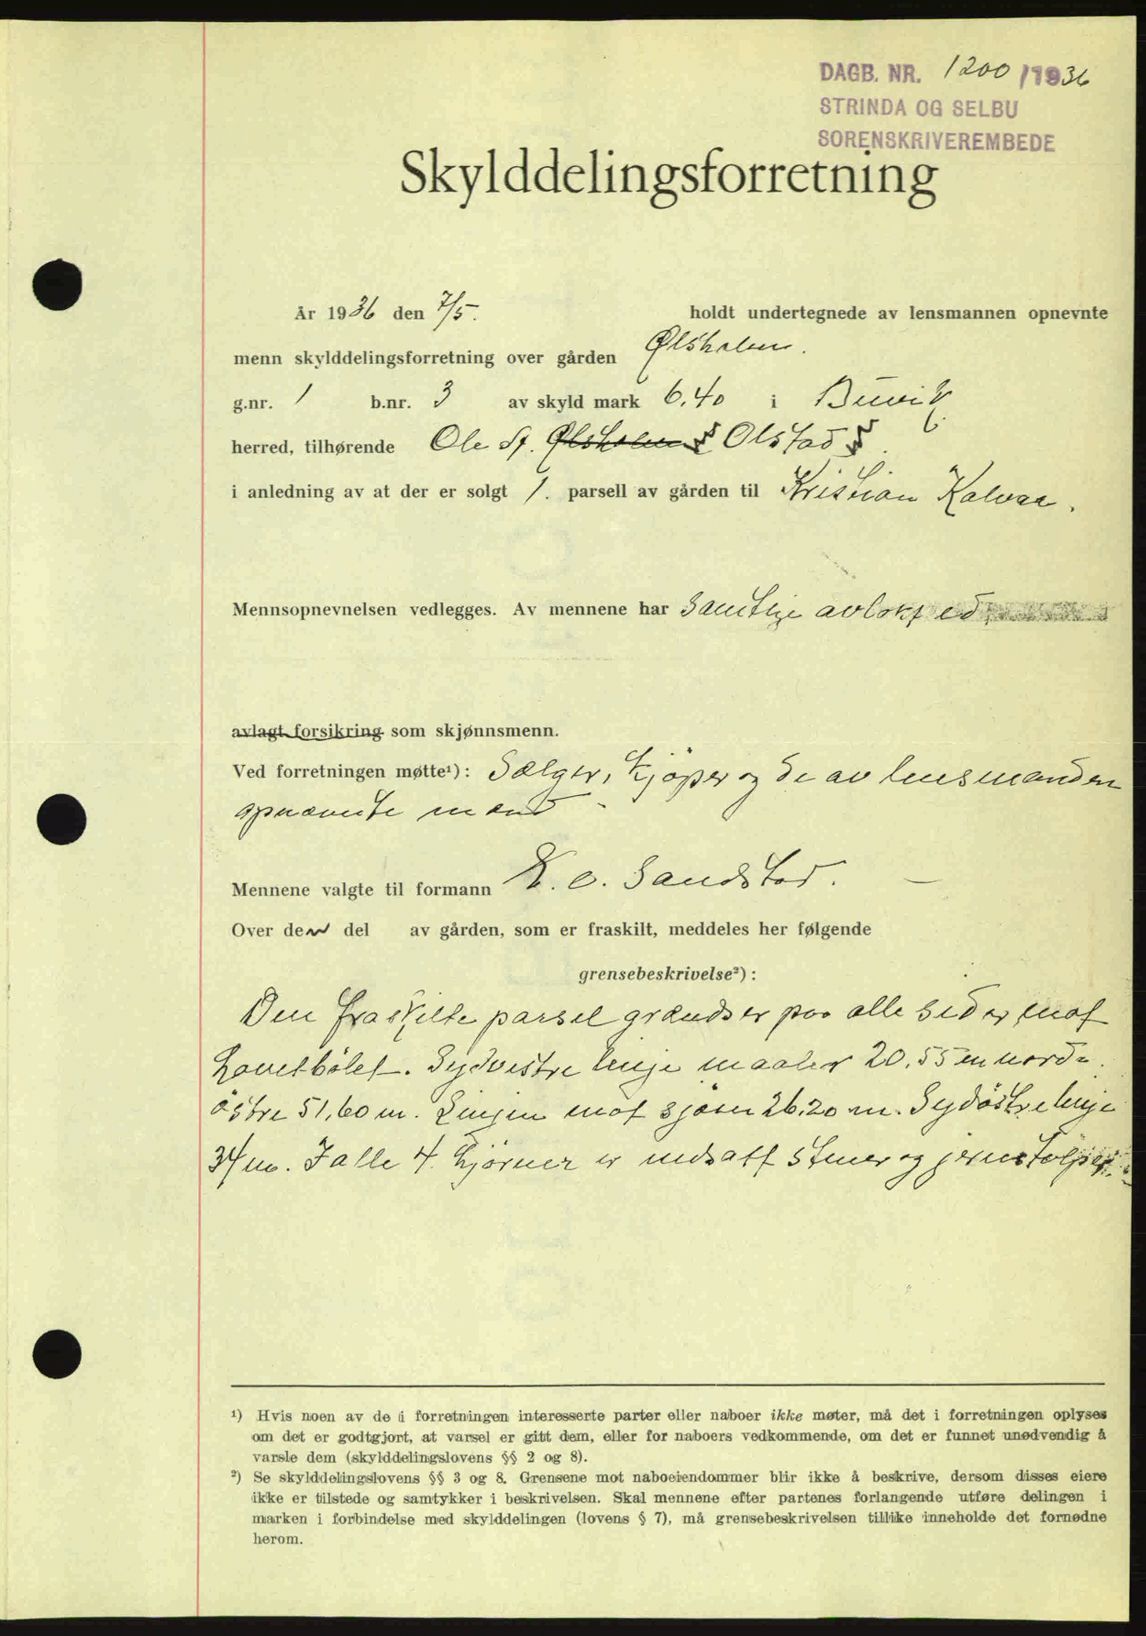 DAGB. NR. 1200/1936
STRINDA OG SELBU
SORENSKRIVEREMBEDE
Skylddelingsforretning
År 1936 den 7/5. holdt undertegnede av lensmannen opnevnte
menn skylddelingsforretning over gården Ølsholm.
g.nr. 1 b.nr. 3 av skyld mark 6.40 i Buvik
herred, tilhørende Ole St. Ølsholm Olstad
i anledning av at der er solgt 1. parsell av gården til Kristian Kalvaa.
Mennsopnevnelsen vedlegges. Av mennene har samtlige avlagt ed
avlagt forsikring som skjønnsmenn.
Ved forretningen møtte¹): Sælger, kjøper og de av lensmanden
opnævnte mænd
Mennene valgte til formann K. O. Sandstad.
Over den del av gården, som er fraskilt, meddeles her følgende
grensebeskrivelse²):
Den fraskilte parsel grændser paa alle sider mot
Hovetbølet. Sydvestre linje maaler 20.55 m nord-
østre 51,60 m. Linjen mot sjøen 26.20 m. Sydøstre linje
34 m. I alle 4 hjørner er nedsatt stener og jernstolper.
¹) Hvis noen av de i forretningen interesserte parter eller naboer ikke møter, må det i forretningen oplyses
om det er godtgjort, at varsel er gitt dem, eller for naboers vedkommende, om det er funnet unødvendig å
varsle dem (skylddelingslovens §§ 2 og 8).
²) Se skylddelingslovens §§ 3 og 8. Grensene mot naboeiendommer blir ikke å beskrive, dersom disses eiere
ikke er tilstede og samtykker i beskrivelsen. Skal mennene efter partenes forlangende utføre delingen i
marken i forbindelse med skylddelingen (lovens § 7), må grensebeskrivelsen tillike inneholde det fornødne
herom.